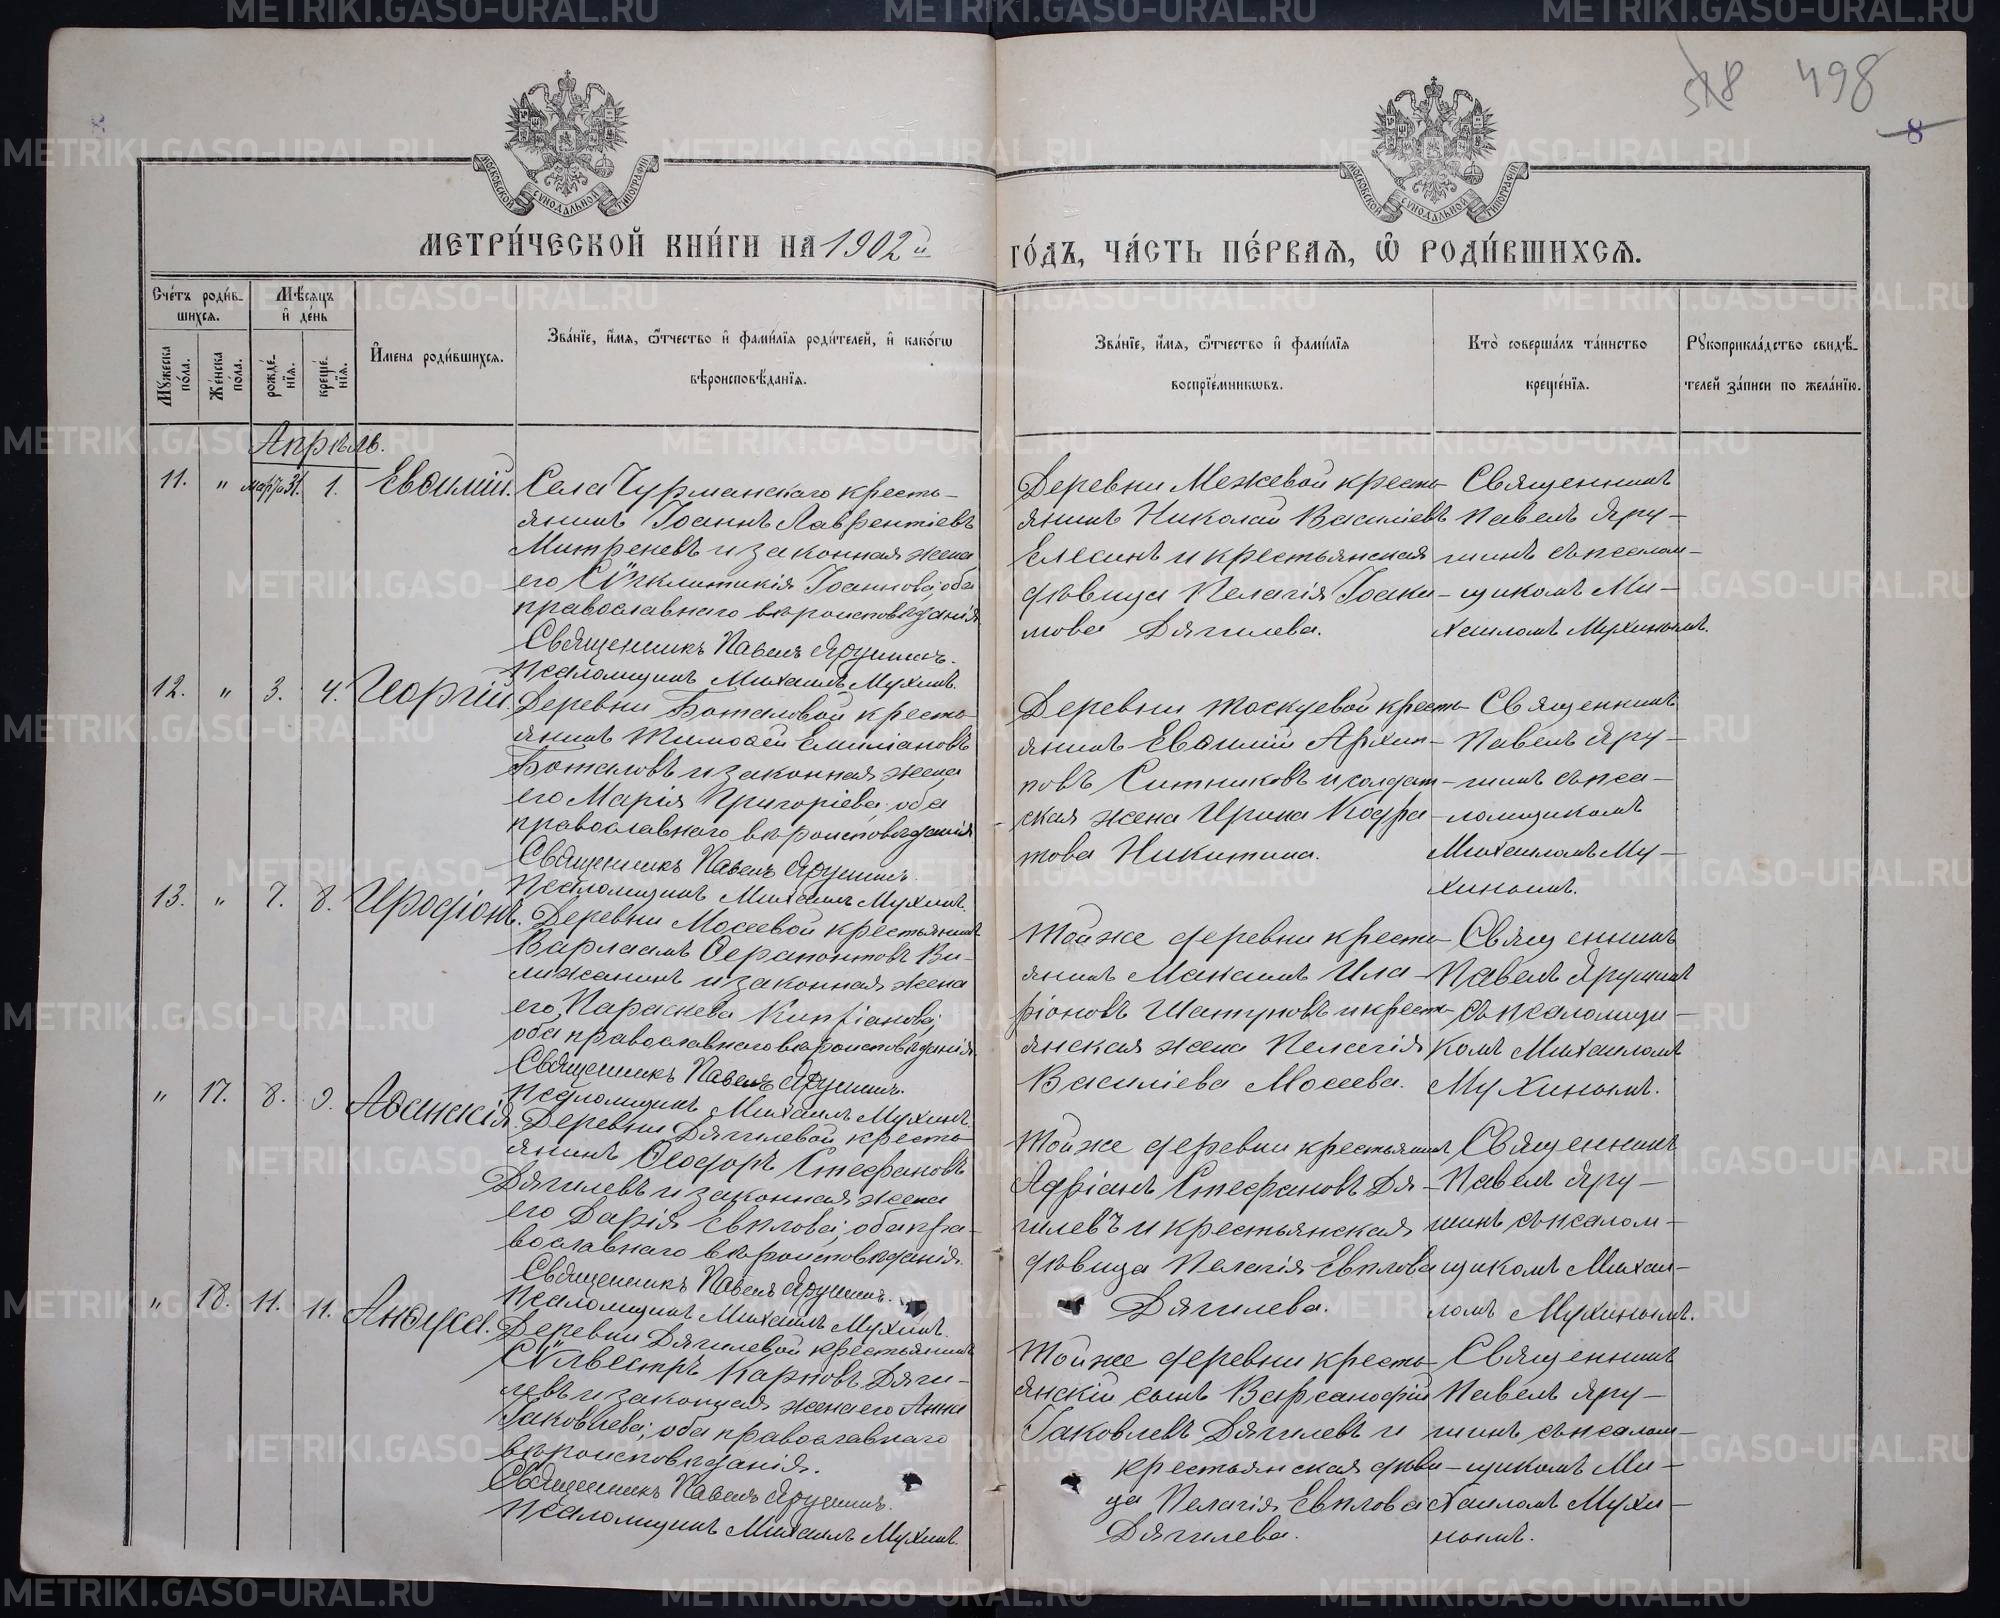 518 498
8
МОСКОВСКОЙ СѴНОДАЛЬНОЙ ТИПОГРАФІИ
МОСКОВСКОЙ СѴНОДАЛЬНОЙ ТИПОГРАФІИ
МЕТРИ́ЧЕСКОЙ КНИ́ГИ НА 1902й
ГО́ДЪ, ЧА́СТЬ ПЕ́РВАѦ, Ѽ РОДИ́ВШИХСѦ.
Сче́тъ роди́в-
шихсѧ.
Мѣ́сѧцъ
и҆ де́нь
Мꙋ́жеска
по́ла.
Же́нска
по́ла.
рожде́-
нїѧ.
креще́-
нїѧ.
И҆мена роди́вшихсѧ.
Зва́нїе, и҆́мѧ, ѻ҆́тчество и҆ фами́лїѧ роди́телей, и҆ како́гѡ
вѣроисповѣ́данїѧ.
Зва́нїе, и҆́мѧ, ѻ҆́тчество и҆ фами́лїѧ
воспрїе́мникѡвъ.
Кто̀ соверша́лъ та́инство
креще́нїѧ.
Рꙋкоприкла́дство свидѣ́-
телей за́писи по жела́нїю.
Апрѣль.
11. " Марта 31. 1. Евѳимій.
Села Чурманскаго кресть-
янинъ Іоаннъ Лаврентіевъ
Митреневъ и законная жена
его Сѵнклитикія Іоаннова; оба
православнаго вѣроисповѣданія
Священникъ Павелъ Ярушинъ.
Псаломщикъ Михаилъ Мухинъ.
Деревни Межевой кресть-
янинъ Николай Василіевъ
Елесинъ и крестьянская
дѣвица Пелагія Іоаки-
мова Дягилева.
Священникъ
Павелъ Яру-
шинъ съ псалом-
щикомъ Ми-
хаиломъ Мухинымъ.
12. " 3. 4. Георгій.
Деревни Боталовой кресть-
янинъ Тимоѳей Емиліановъ
Боталовъ и законная жена
его Марія Григоріева; оба
православнаго вѣроисповѣданія
Священникъ Павелъ Ярушинъ.
Псаломщикъ Михаилъ Мухинъ.
Деревни Токуевой кресть-
янинъ Евѳимій Архип-
повъ Ситниковъ и солдат-
ская жена Ирина Кодра-
това Никитина.
Священникъ
Павелъ Яру-
шинъ съ пса-
ломщикомъ
Михаиломъ Му-
хинымъ.
13. " 7. 8. Иродіонъ.
Деревни Мосеевой крестьянинъ
Варлаамъ Ѳерапонтовъ Ви-
лижанинъ и законная жена
его, Параскева Кипріанова;
оба православнаго вѣроисповѣданія.
Священникъ Павелъ Ярушинъ.
Псаломщикъ Михаилъ Мухинъ.
Той же деревни кресть-
янинъ Максимъ Ила-
ріоновъ Шатуновъ и кресть-
янская жена Пелагія
Василіева Мосеева.
Священникъ
Павелъ Ярушинъ
съ псаломщи-
комъ Михаиломъ
Мухинымъ.
" 17. 8. 9. Аѳанасія.
Деревни Дягилевой кресть-
янинъ Ѳеодоръ Стефановъ
Дягилевъ и законная жена
его Дарія Евплова; оба пра-
вославнаго вѣроисповѣданія.
Священникъ Павелъ Ярушинъ.
Псаломщикъ Михаилъ Мухинъ.
Той же деревни крестьянинъ
Адріанъ Стефановъ Дя-
гилевъ и крестьянская
дѣвица Пелагія Евплова
Дягилева.
Священникъ
Павелъ Яру-
шинъ съ псалом-
щикомъ Михаи-
ломъ Мухинымъ.
" 18. 11. 11. Анѳуса.
Деревни Дягилевой крестьянинъ
Сѵлвестръ Карповъ Дяги-
левъ и законная жена его Анна
Іаковлева; оба православнаго
вѣроисповѣданія.
Священникъ Павелъ Ярушинъ.
Псаломщикъ Михаилъ Мухинъ.
Той же деревни кресть-
янскій сынъ Варсанофій
Іаковлевъ Дягилевъ и
крестьянская дѣви-
ца Пелагія Евплова
Дягилева.
Священникъ
Павелъ Яру-
шинъ съ псалом-
щикомъ Ми-
хаиломъ Мухи-
нымъ.
METRIKI.GASO-URAL.RU